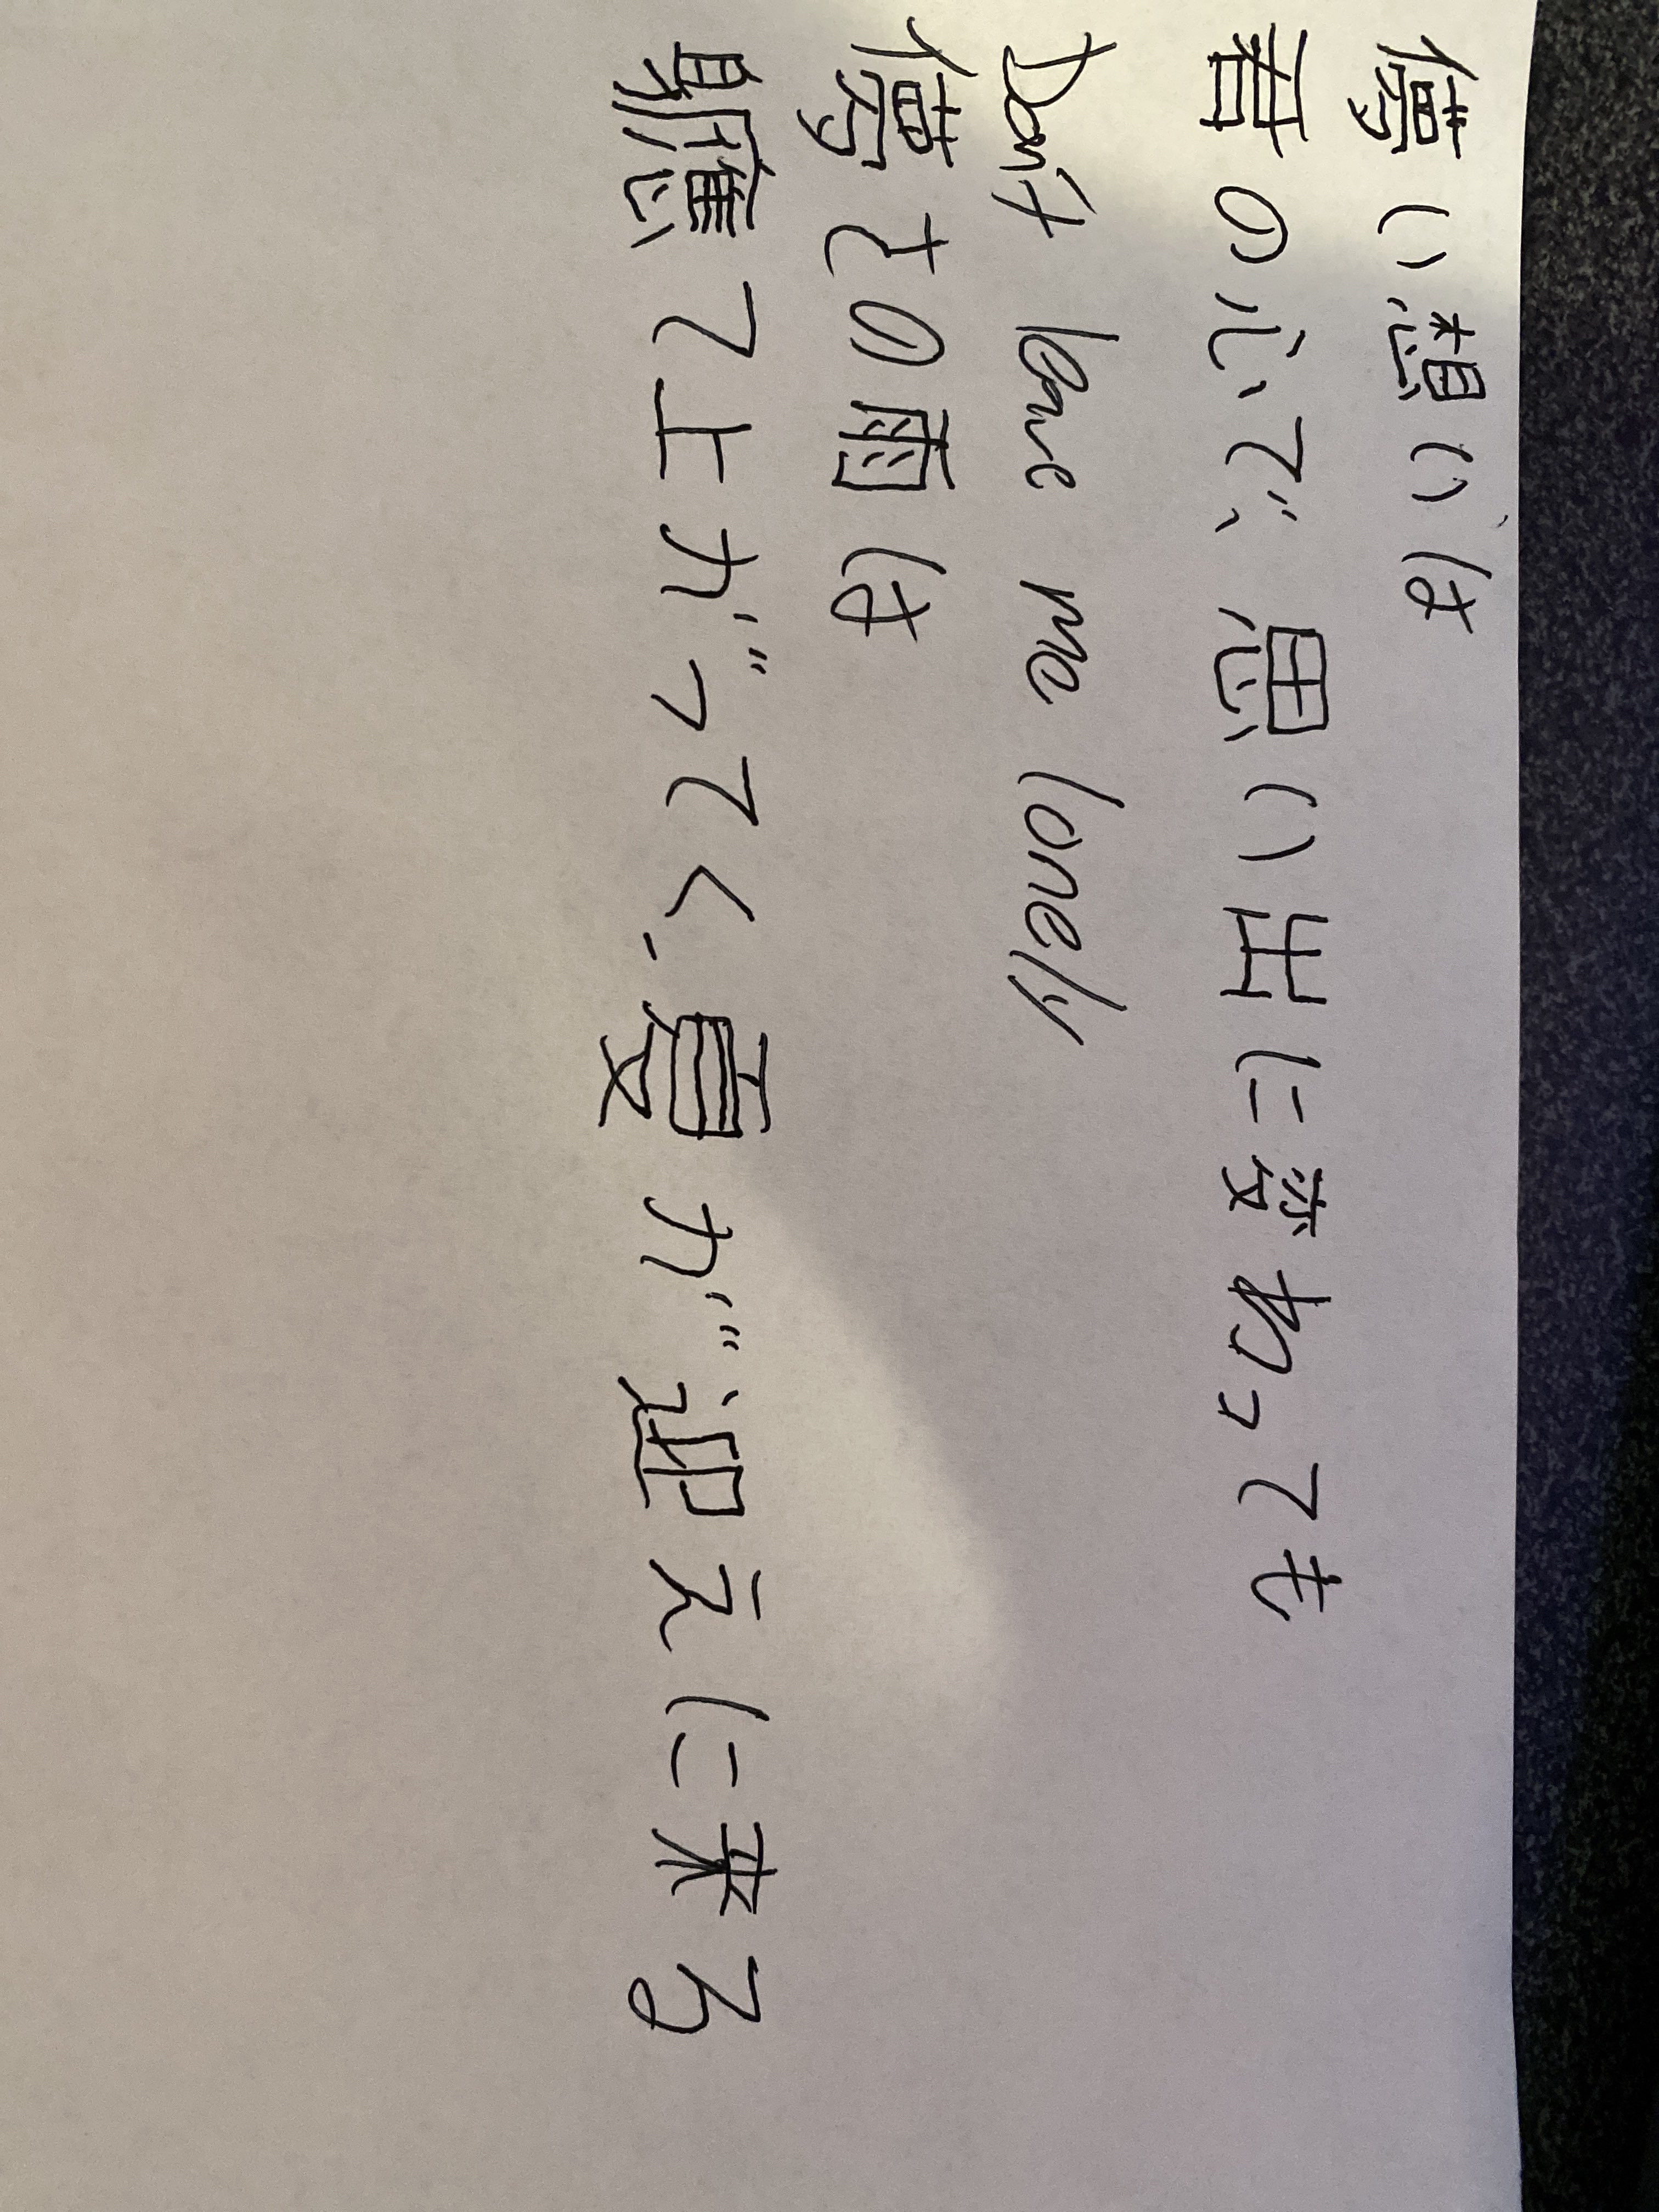 儚い想いは
君の心で、思い出に変わっても
Don't leave me lonely
儚さの雨は
軈て上がってく、夏が迎えに来る